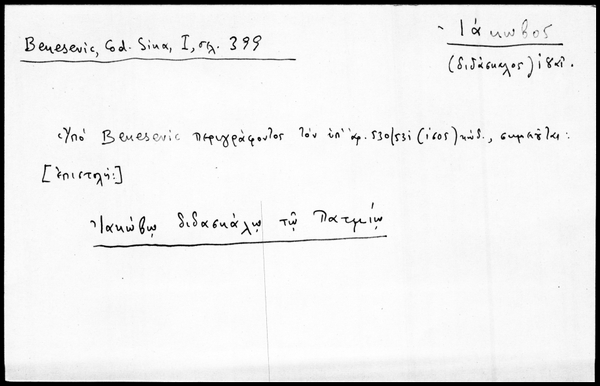 Benesevic, Cod. Sina, I, σελ. 399
Ἰάκωβος
(διδάσκαλος)
Ὑπό Benesevic περιγράφοντος τόν ὑπ' ἀρ. 530/531 (ἰσος) κώδ., σημειοῦται:
[ἐπιστολή:]
Ἰακώβῳ διδασκάλῳ τῷ Πατμίῳ